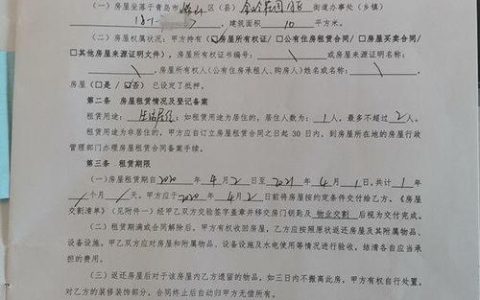 （一）房屋坐落于青岛市 区（县） 街道办事处（乡镇）
，建筑面积 10 平方米。
（二）房屋权属状况：甲方持有（☑房屋所有权证/□公有住房租赁合同/□房屋买卖合同/
□其他房屋来源证明文件），房屋所有权证书编号： 或房屋来源证明名称：
，房屋所有权人（公有住房承租人、购房人）姓名或名称： ，
房屋（□是/☑否）已设定了抵押。
第二条 房屋租赁情况及登记备案
租赁用途：生活居住；如租赁用途为居住的，居住人数为：1 人，最多不超过 2 人。
租赁用途为非居住的，甲方应自订立房屋租赁合同之日起 30 日内，到房屋所在地的房屋行政
管理部门办理房屋租赁合同备案手续。
第三条 租赁期限
（一）房屋租赁期自 2020 年 4 月 2 日至 2021 年 4 月 1 日，共计 1 年
/ 个月 / 天。甲方应于 2020 年 4 月 2 日前将房屋按约定条件交付给乙方。《房屋
交割清单》（见附件一）经甲乙双方交验签字盖章并移交房门钥匙及 物业交割 后视为交付完成。
（二）租赁期满或合同解除后，甲方有权收回房屋，乙方应按照原状返还房屋及其附属物品、
设备设施。甲乙双方应对房屋和附属物品、设备设施及水电使用等情况进行验收，结清各自应当承
担的费用。
（三）返还房屋后对于该房屋内乙方遗留的物品，如三日内不搬离此房，甲方有权自行处置，
对乙方的装修装饰部分，合同终止后自动归甲方无偿所有。